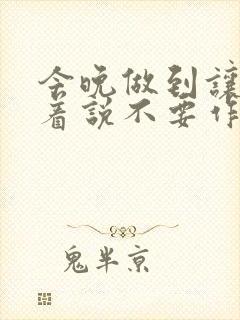 今晚做到讓
着說不要作
鬼半京